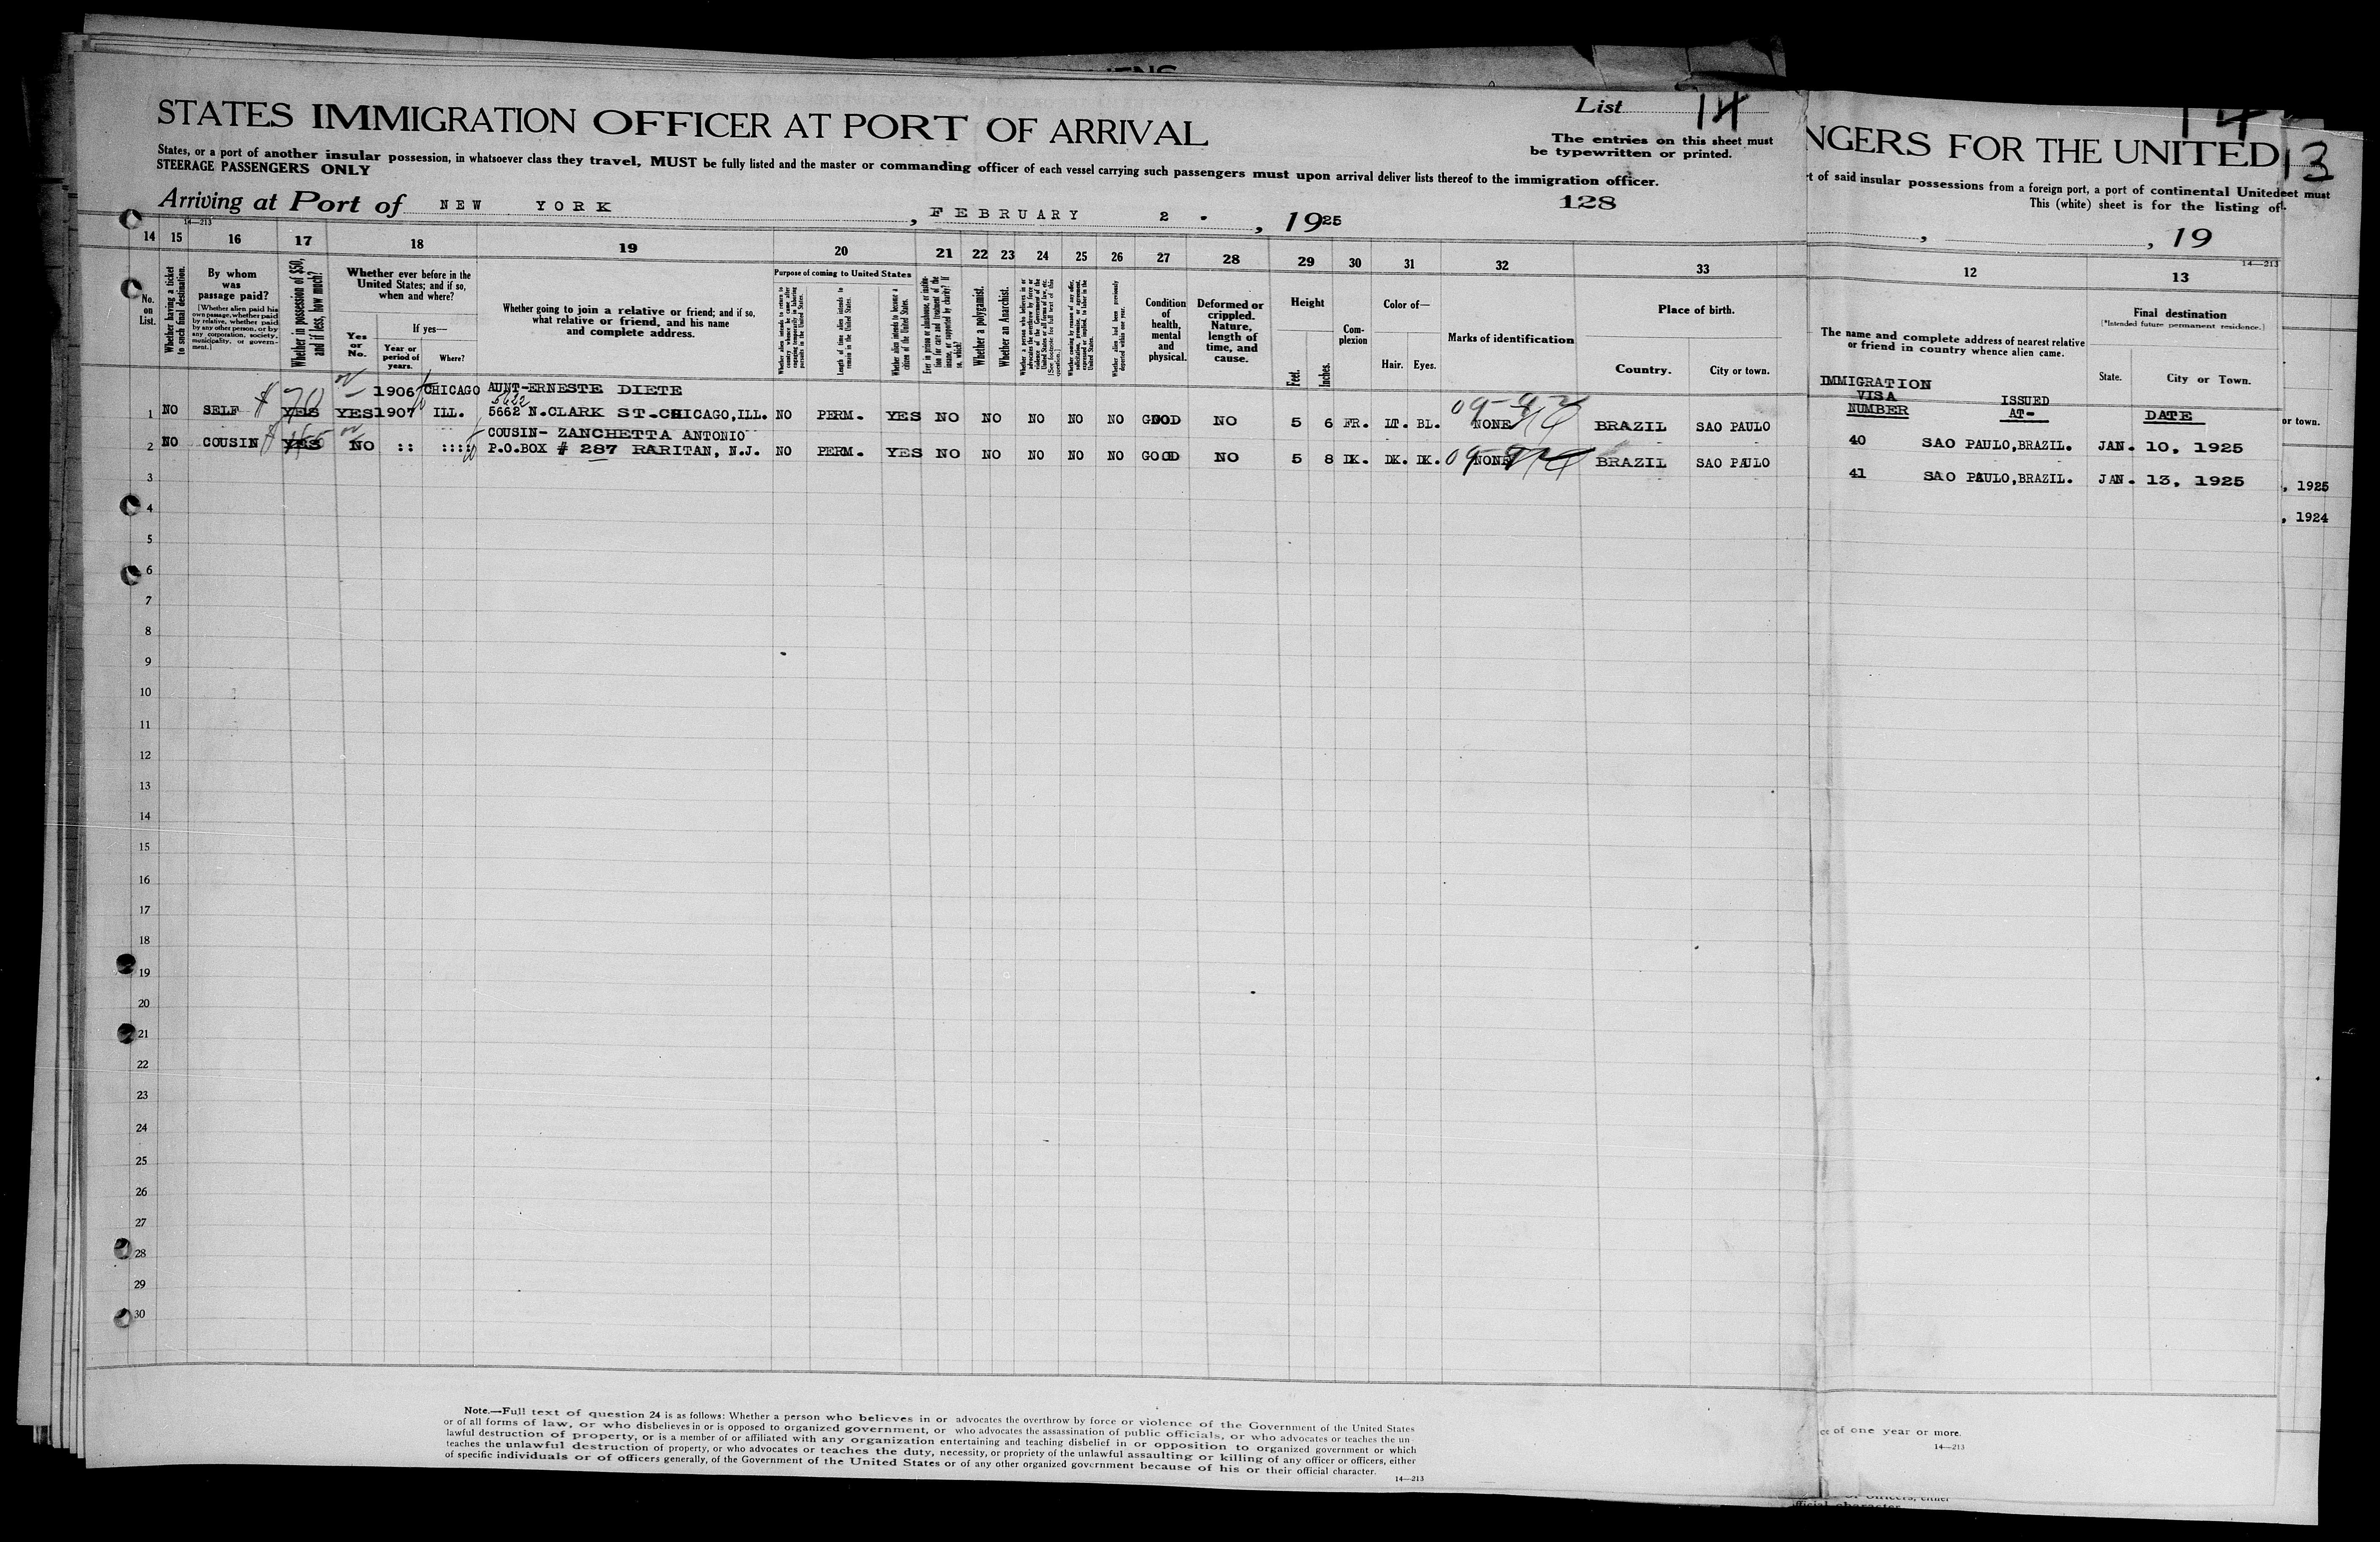 STATES IMMIGRATION OFFICER AT PORT OF ARRIVAL
List 14
The entries on this sheet must
be typewritten or printed.
States, or a port of another insular possession, in whatsoever class they travel, MUST be fully listed and the master or commanding officer of each vessel carrying such passengers must upon arrival deliver lists thereof to the immigration officer.
STEERAGE PASSENGERS ONLY
Arriving at Port of NEW YORK, FEBRUARY 2., 1925
128
14—213
14 15 16 17 18 19 20 21 22 23 24 25 26 27 28 29 30 31 32 33
No. on List.
Whether having a ticket to such final destination.
By whom was passage paid?
[Whether alien paid his own passage, whether paid by relative, whether paid by any other person, or by any corporation, society, municipality, or government.]
Whether in possession of $50, and if less, how much?
Whether ever before in the United States; and if so, when and where?
Yes or No.
If yes—
Year or period of years.
Where?
Whether going to join a relative or friend; and if so, what relative or friend, and his name and complete address.
Purpose of coming to United States
Whether alien intends to return to country whence he came after engaging temporarily in laboring pursuits in the United States.
Length of time alien intends to remain in the United States.
Whether alien intends to become a citizen of the United States.
Ever in prison or almshouse, or institution for care and treatment of the insane, or supported by charity? If so, which?
Whether a polygamist.
Whether an Anarchist.
Whether coming by reason of any offer, solicitation, promise, or agreement, expressed or implied, to labor in the United States.
Whether alien had been previously deported within one year.
Condition of health, mental and physical.
Deformed or crippled. Nature, length of time, and cause.
Height
Feet. Inches.
Complexion
Color of—
Hair. Eyes.
Marks of identification
Place of birth.
Country. City or town.
1906 CHICAGO AUNT-ERNESTE DIETE
5622
1 NO SELF $70 YES YES 1907 ILL. 5662 N.CLARK ST-CHICAGO,ILL. NO PERM. YES NO NO NO NO NO GOOD NO 5 6 FR. LT. BL. NONE BRAZIL SAO PAULO
COUSIN- ZANCHETTA ANTONIO
2 NO COUSIN YES NO :: :::: P.O.BOX # 287 RARITAN, N.J. NO PERM. YES NO NO NO NO NO GOOD NO 5 8 DK. DK. DK. NONE BRAZIL SAO PAULO
3
4
5
6
7
8
9
10
11
12
13
14
15
16
17
18
19
20
21
22
23
24
25
26
27
28
29
30
Note.—Full text of question 24 is as follows: Whether a person who believes in or advocates the overthrow by force or violence of the Government of the United States
or of all forms of law, or who disbelieves in or is opposed to organized government, or who advocates the assassination of public officials, or who advocates or teaches the un-
lawful destruction of property, or is a member of or affiliated with any organization entertaining and teaching disbelief in or opposition to organized government or which
teaches the unlawful destruction of property, or who advocates or teaches the duty, necessity, or propriety of the unlawful assaulting or killing of any officer or officers, either
of specific individuals or of officers generally, of the Government of the United States or of any other organized government because of his or their official character.
14—213
NGERS FOR THE UNITED
13
rt of said insular possessions from a foreign port, a port of continental United
eet must
This (white) sheet is for the listing of
, 19
14—213
12 13
The name and complete address of nearest relative or friend in country whence alien came.
Final destination
[*Intended future permanent residence.]
State. City or Town.
IMMIGRATION
VISA ISSUED
NUMBER AT- DATE
or town.
40 SAO PAULO,BRAZIL. JAN. 10, 1925
41 SAO PAULO,BRAZIL. JAN. 13, 1925
, 1925
, 1924
ce of one year or more.
14—213